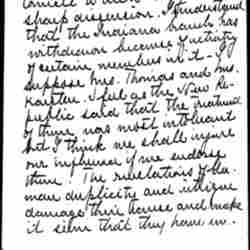 sharp dissension. I understand
that the Indiana branch has
withdrawn because of activity
of certain members in it - I
suppose Mrs. Thomas and Mrs.
Karsten. I feel as the New Re-
public said that the treatment
of them was most intolerant
but I think we shall injure
our influence if we endorse
them. The revelations of Ger-
man duplicity and intrigue
damages their cause and make
it seem that they have in-